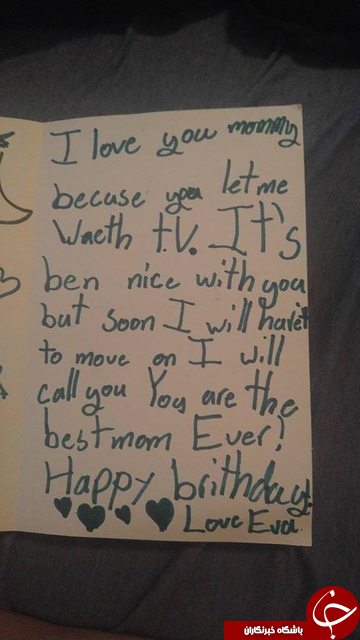 I love you mommy
becuse you let me
Waeth t.v. It's
ben nice with you
but soon I will
to move on I will
call you You are the
best mom Ever!
Happy brithday
Love Eva.
باشگاه خبرنگاران